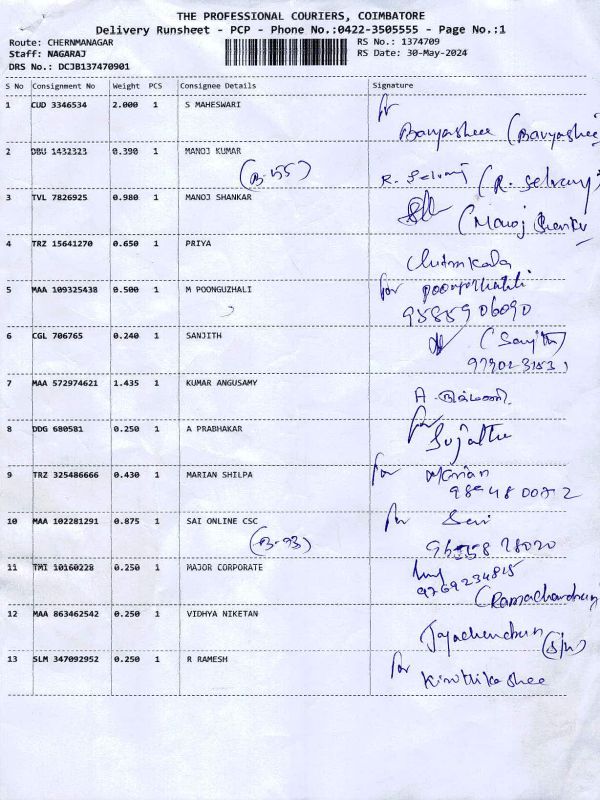 THE PROFESSIONAL COURIERS, COIMBATORE
Delivery Runsheet - PCP - Phone No.:0422-3505555 - Page No.:1
Route: CHERNMANAGAR RS No.: 1374709
Staff: NAGARAJ RS Date: 30-May-2024
DRS No.: DCJB137470901
S No Consignment No Weight PCS Consignee Details Signature
1 CUD 3346534 2.000 1 S MAHESWARI
for
Bavyashee (Bavyashee
2 DBU 1432323 0.390 1 MANOJ KUMAR
(B-55) R. Selvaraj (R. Selvaraj)
3 TVL 7826925 0.980 1 MANOJ SHANKAR
(Manoj Shankar
4 TRZ 15641270 0.650 1 PRIYA
Chitrakala
5 MAA 109325438 0.500 1 M POONGUZHALI for
6 CGL 706765 0.240 1 SANJITH (Sanjith)
7 MAA 572974621 1.435 1 KUMAR ANGUSAMY
8 DDG 680581 0.250 1 A PRABHAKAR for
Sujatha
9 TRZ 325486666 0.430 1 MARIAN SHILPA for Marian
10 MAA 102281291 0.875 1 SAI ONLINE CSC for
(B-93)
11 TMI 10160228 0.250 1 MAJOR CORPORATE
9769234815
(Ramachandran
12 MAA 863462542 0.250 1 VIDHYA NIKETAN
Jayachandran
(S/n)
13 SLM 347092952 0.250 1 R RAMESH for
Kiruthikashee